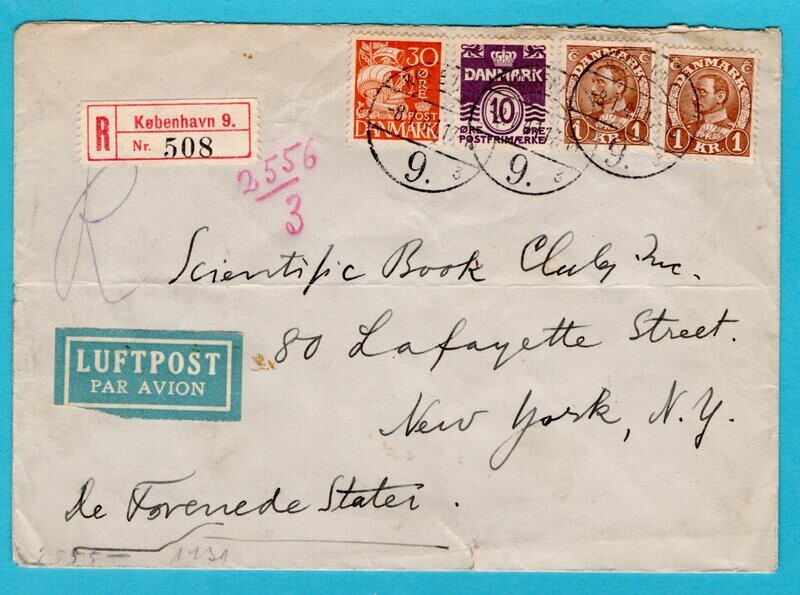 30
ØRE
POST
DANMARK
DANMARK
10
ØRE ØRE
POSTFRIMÆRKE
DANMARK
1 KR. 1
DANMARK
1 KR. 1
9. 3
9. 3
9.
R København 9.
Nr. 508
2556
3
R
Scientific Book Club, Inc.
80 Lafayette Street.
New York, N.Y.
LUFTPOST
PAR AVION
De Forenede Stater.